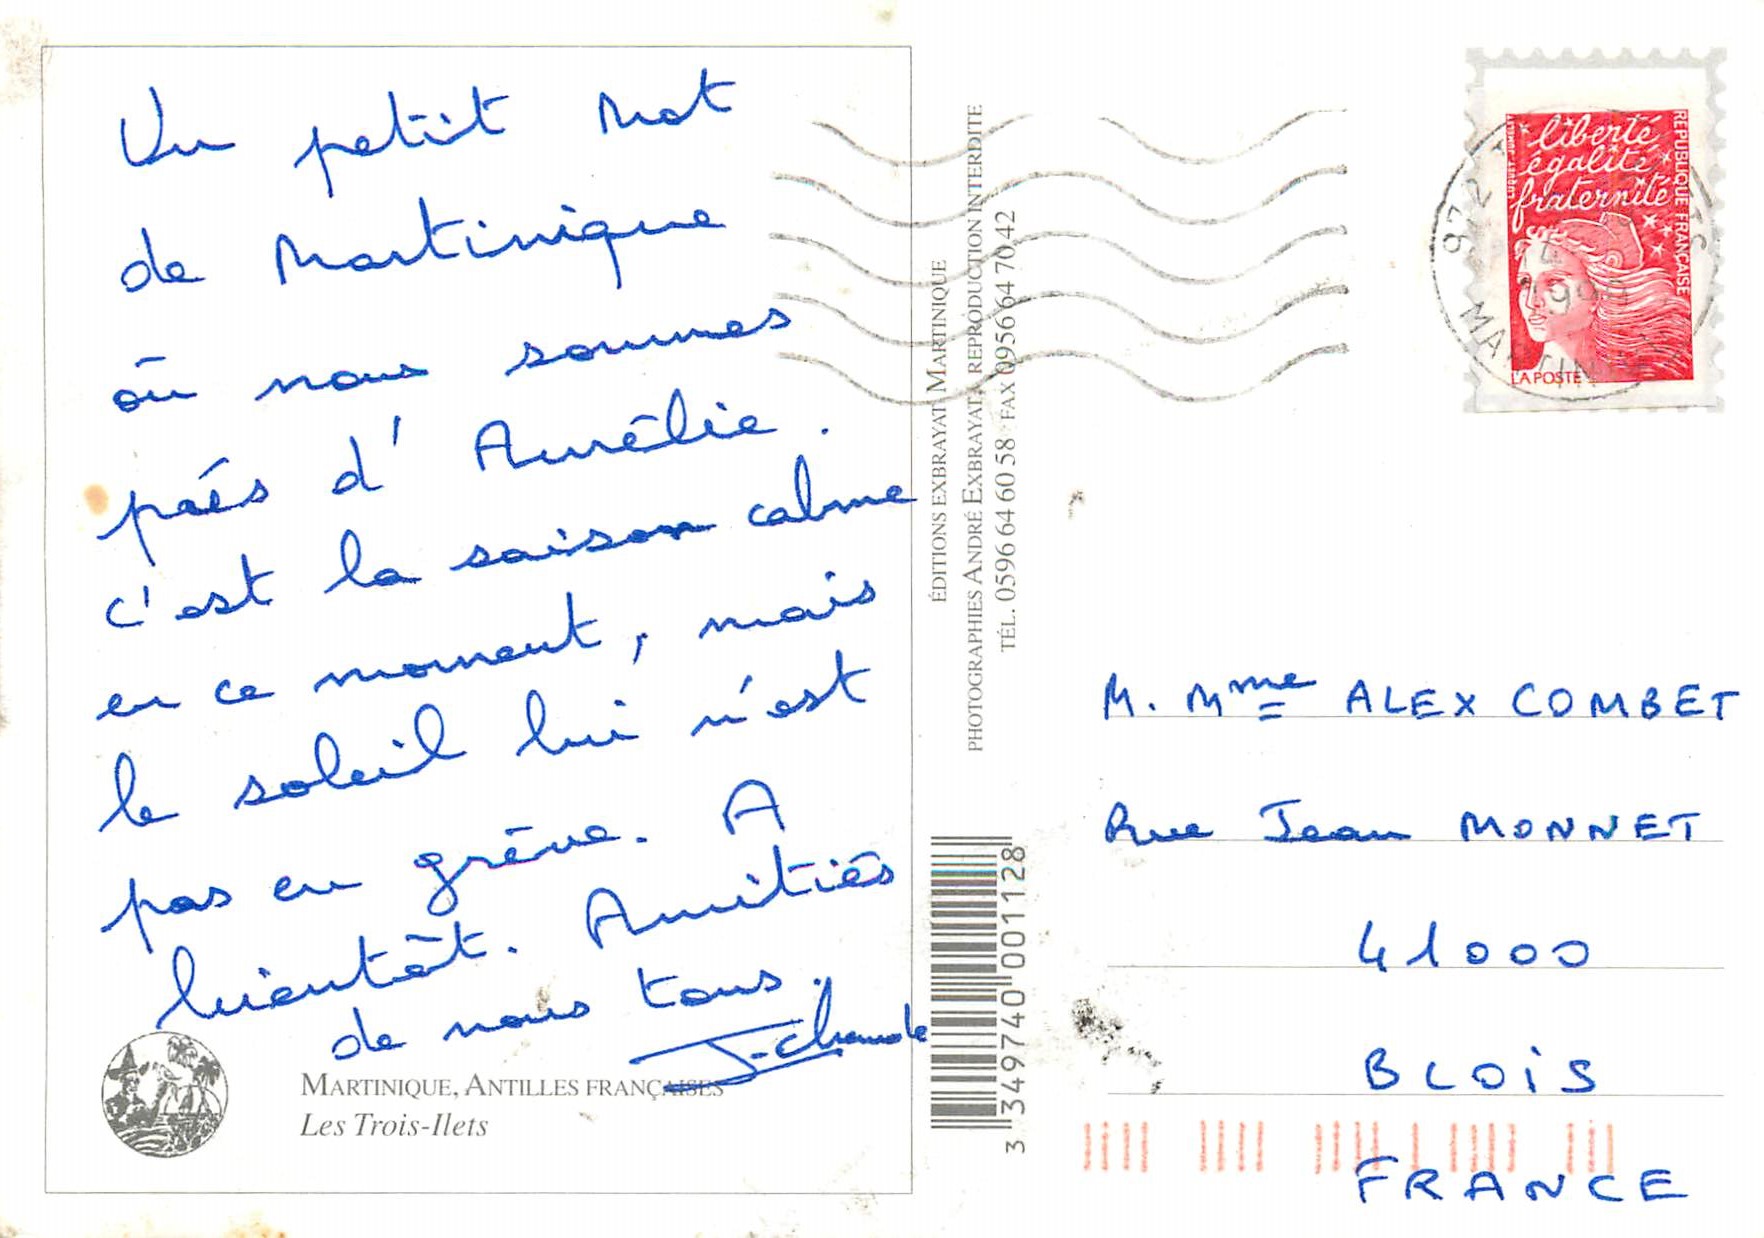 Un petit mot
de Martinique
où nous sommes
près d'Aurélie.
c'est la saison calme
en ce moment, mais
le soleil lui n'est
pas en grève. A
bientôt. Amitiés
de nous tous.
J-Claude
MARTINIQUE, ANTILLES FRANÇAISES
Les Trois-Ilets
ÉDITIONS EXBRAYAT MARTINIQUE
PHOTOGRAPHIES ANDRÉ EXBRAYAT, REPRODUCTION INTERDITE
TÉL. 0596 64 60 58 FAX 0956 64 70 42
3 349740 001128
liberté
égalité
fraternité
RÉPUBLIQUE FRANÇAISE
LA POSTE
972
MARTINIQUE
M. Mme ALEX COMBET
Rue Jean MONNET
41000
BLOIS
FRANCE